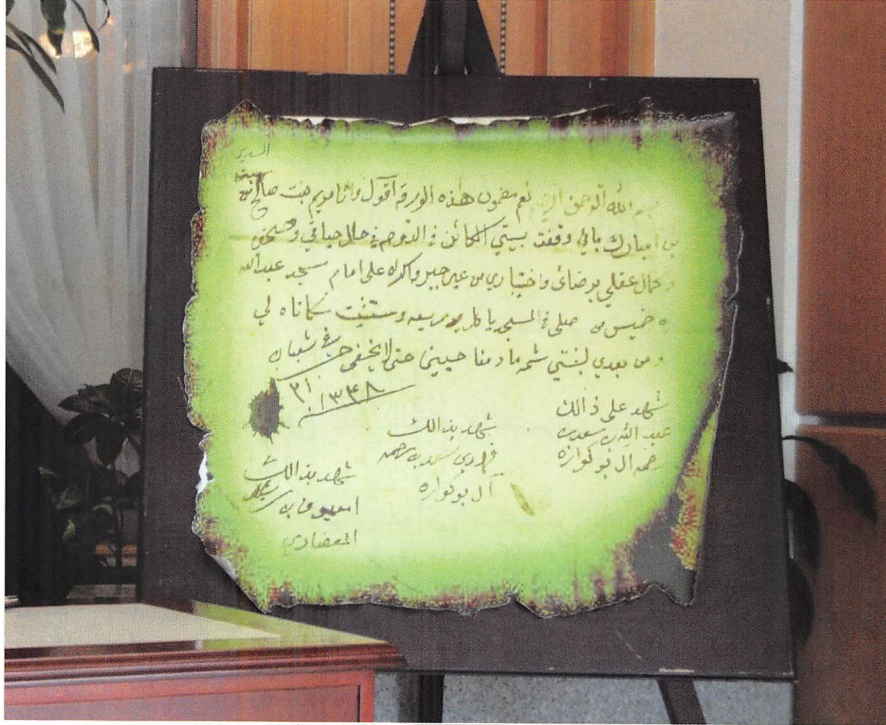 بسم الله الرحمن الرحيم نعم مضمون هذه الورقه اقول وانا مريم بنت صالح
بن امبارك باني وقفت بيتي الكائن في الدوحه في حال حياتي وصحتي
وكمال عقلي برضائي واختياري من غير جبر واكراه على امام مسجد عبدالله
خميس من صلى في المسجد وستثنيت سكناه لي
ومن بعدي لبنتي شمه مادمنا حيين حتى لايخفى في شعبان
٢١ ١٣٣٨
شهد على ذالك
عبد الله بن سعد بن
حمه ال بوكواره
شهد بذالك
سعد بن حمه
آل بوكواره
شهد بذالك
المعضادي